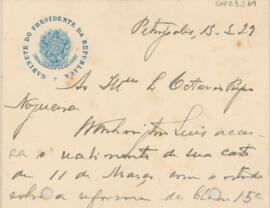 GABINETE DO PRESIDENTE DA REPUBLICA
Petropolis, 15-3-29
Ao Illmo Sr Octavio
Nogueira
Washington Luis accu
sa o recebimento de sua carta
de 11 de Março com o estudo
sobre a reforma de